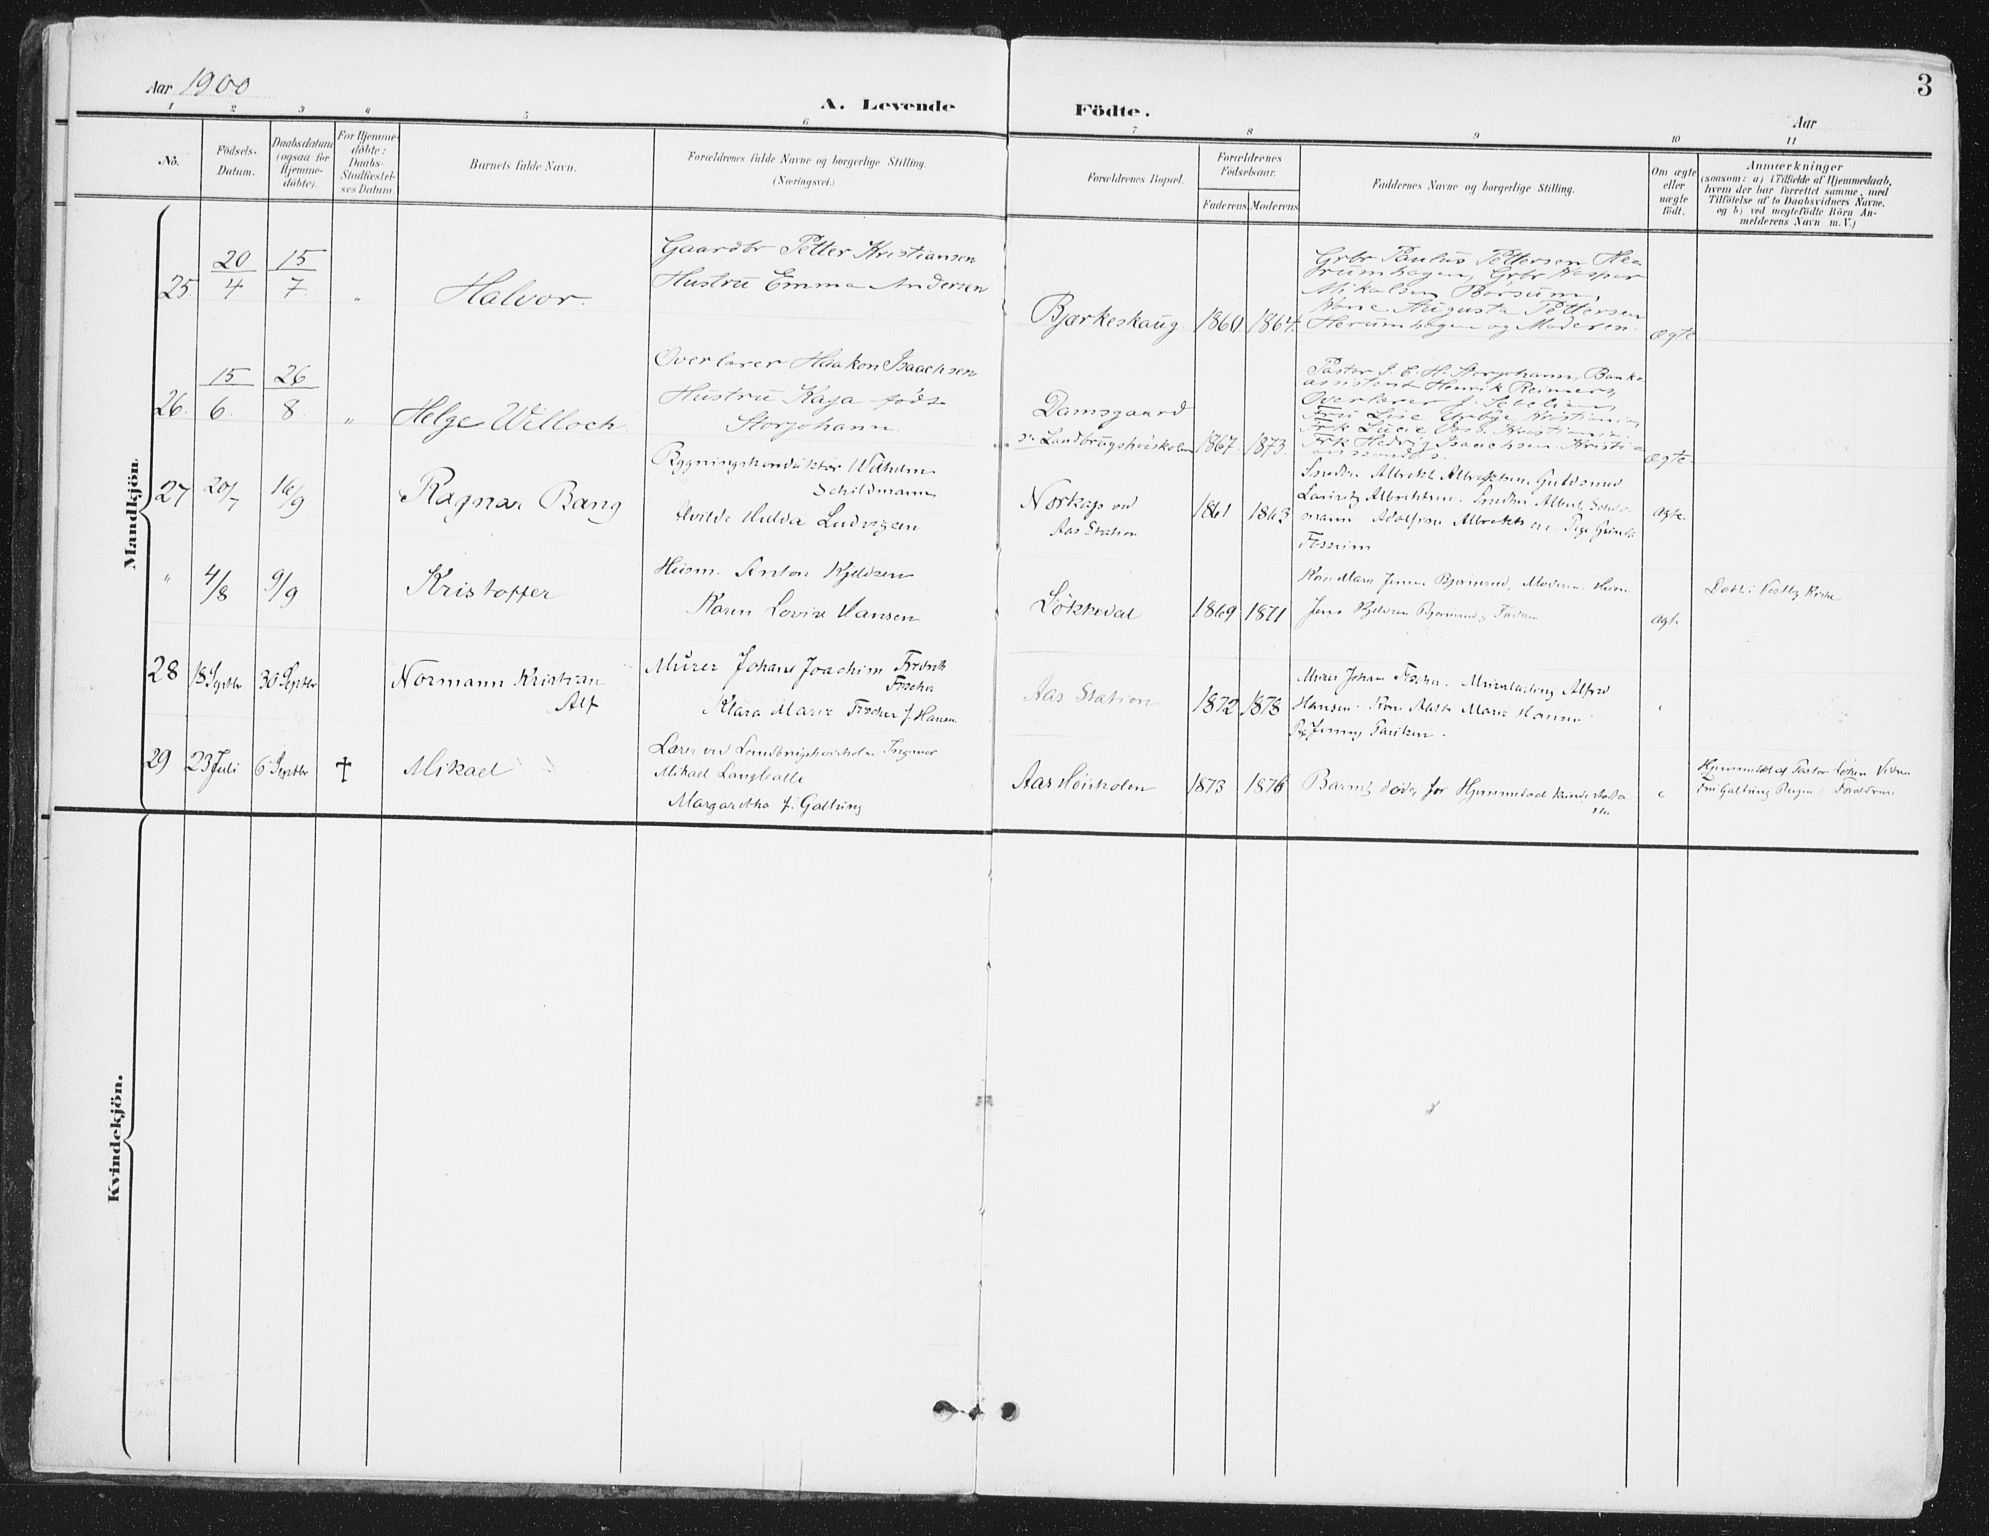 Aar 1900
3
A. Levende Födte.
Aar
1 2 3 4 5 6 7 8 9 10 11
No.
Födsels-
Datum.
Daabsdatum
(ogsaa for
Hjemme-
døbte).
For Hjemme-
døbte:
Daabs-
Stadfæstel-
ses Datum.
Barnets fulde Navn.
Forældrenes fulde Navne og borgerlige Stilling.
(Næringsvei.)
Forældrenes Bopæl.
Forældrenes
Fødselsaar.
Faderens. Moderens.
Faddernes Navne og borgerlige Stilling.
Om ægte
eller
uægte
født.
Anmærkninger
(saasom: a) i Tilfælde af Hjemmedaab,
hvem der har forrettet samme, med
Tilføielse af to Daabsvidners Navne.
og b) ved uægtefødte Börn An-
melderens Navn m. V.)
Mandkjön.
25 20/4 15/7 " Halvor.
Gaardbr Petter Kristiansen
Hustru Emma Andersen
Bjærkeskaug. 1860. 1864.
Grbr Paulus Pettersen He-
rumhagen, Grbr Kasper
Mikalsen Borsum,
Augusta Pettersen
Herumhagen og Moderen.
ægte
26. 15/6. 26/8. " Helge Willoch.
Overlærer Haakon Isaachsen
Hustru Kaja født
Storjohann.
Damsgaard
v. Landbrugshøiskolen 1867. 1873.
Pastor J. C. H. Storjohann, Bank-
assistent Henrik Reimers,
Overlærer J. Sebelien,
Fru Lise Urbye Kristiania,
Frk Lucie Kristiania,
Frk Hedvig Isaachsen Kristi-
anssand.
ægte
27 20/7 16/9 Ragnar Bang
Bygningskonduktør Wilhelm
Schildmann
Hulda Ludvigsen
Norkap ved
Aas Station
1861 1863
Snedker Albrekt Albrektsen. Guldsmed
Lauritz Albrektsen. Snedker Albert Schild-
mann Adolfine Albrektsen Pige
Fossum
ægte
" 4/8 9/9 Kristoffer
Husm. Anton Kjeldsen
Karen Lovise Hansen
Løkkedal 1869 1871
Kone Marie Jensen Bjørnerud, Moderen
Jens Kjeldsen Bjørnerud, Faderen
ægte
Døbt i Nestby Kirke
28 18 Septbr 30 Septbr Normann Kristian
Alf
Murer Johans Joachim Fredrik
Fischer
Klara Marie Fischer f. Hansen
Aas Station 1872 1878
Murer Johan Fischer. Alfred
Hansen. Marie Hansen
Pig Jenny Paulsen.
29 23 Juli 6 Septbr † Mikael
Lærer ved Landbrugshøiskolen Ingvar
Mikael Langballe
Margaretha f. Galtung
Aas Høiskolen 1873 1876
Barnet døde før Hjemmedaab kunde stadfæ-
stes
Hjemmedøbt af Pastor
Fru Galtung Forældrene
Kvindekjön.